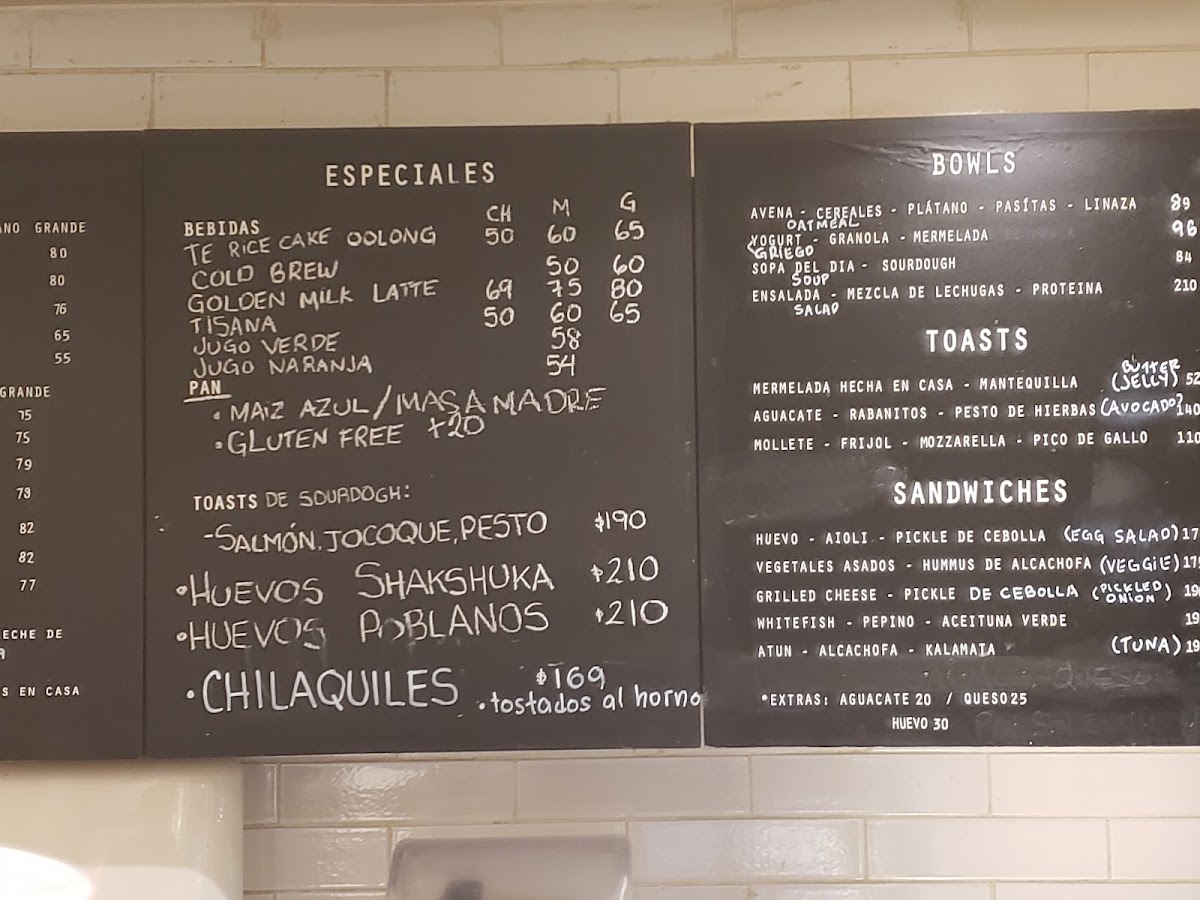 GRANDE
80
80
76
65
55
GRANDE
75
75
79
79
82
82
77
ECHE DE
S EN CASA
ESPECIALES
BEBIDAS CH M G
TE RICE CAKE OOLONG 50 60 65
COLD BREW 50 60
GOLDEN MILK LATTE 69 75 80
TISANA 50 60 65
JUGO VERDE 58
JUGO NARANJA 54
PAN
• MAIZ AZUL/MASA MADRE
• GLUTEN FREE +20
TOASTS DE SOURDOGH:
-SALMÓN, JOCOQUE, PESTO $190
•HUEVOS SHAKSHUKA $210
•HUEVOS POBLANOS $210
•CHILAQUILES $169
•tostados al horno
BOWLS
AVENA - CEREALES - PLÁTANO - PASÍTAS - LINAZA 89
OATMEAL
YOGURT - GRANOLA - MERMELADA 96
GRIEGO
SOPA DEL DIA - SOURDOUGH 84
SOUP
ENSALADA - MEZCLA DE LECHUGAS - PROTEINA 210
SALAD
TOASTS
BUTTER
MERMELADA HECHA EN CASA - MANTEQUILLA (JELLY) 52
AGUACATE - RABANITOS - PESTO DE HIERBAS (AVOCADO) 140
MOLLETE - FRIJOL - MOZZARELLA - PICO DE GALLO 110
SANDWICHES
HUEVO - AIOLI - PICKLE DE CEBOLLA (EGG SALAD) 17
VEGETALES ASADOS - HUMMUS DE ALCACHOFA (VEGGIE) 175
GRILLED CHEESE - PICKLE DE CEBOLLA (PICKLED ONION) 190
WHITEFISH - PEPINO - ACEITUNA VERDE 19
ATUN - ALCACHOFA - KALAMATA (TUNA) 19
*EXTRAS: AGUACATE 20 / QUESO 25
HUEVO 30